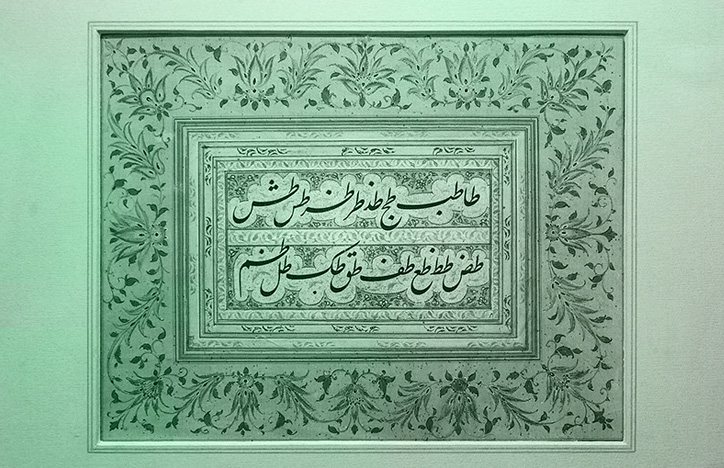 طا طب طج طد طر طس طش
طض طط طع طف طق طک طل طم